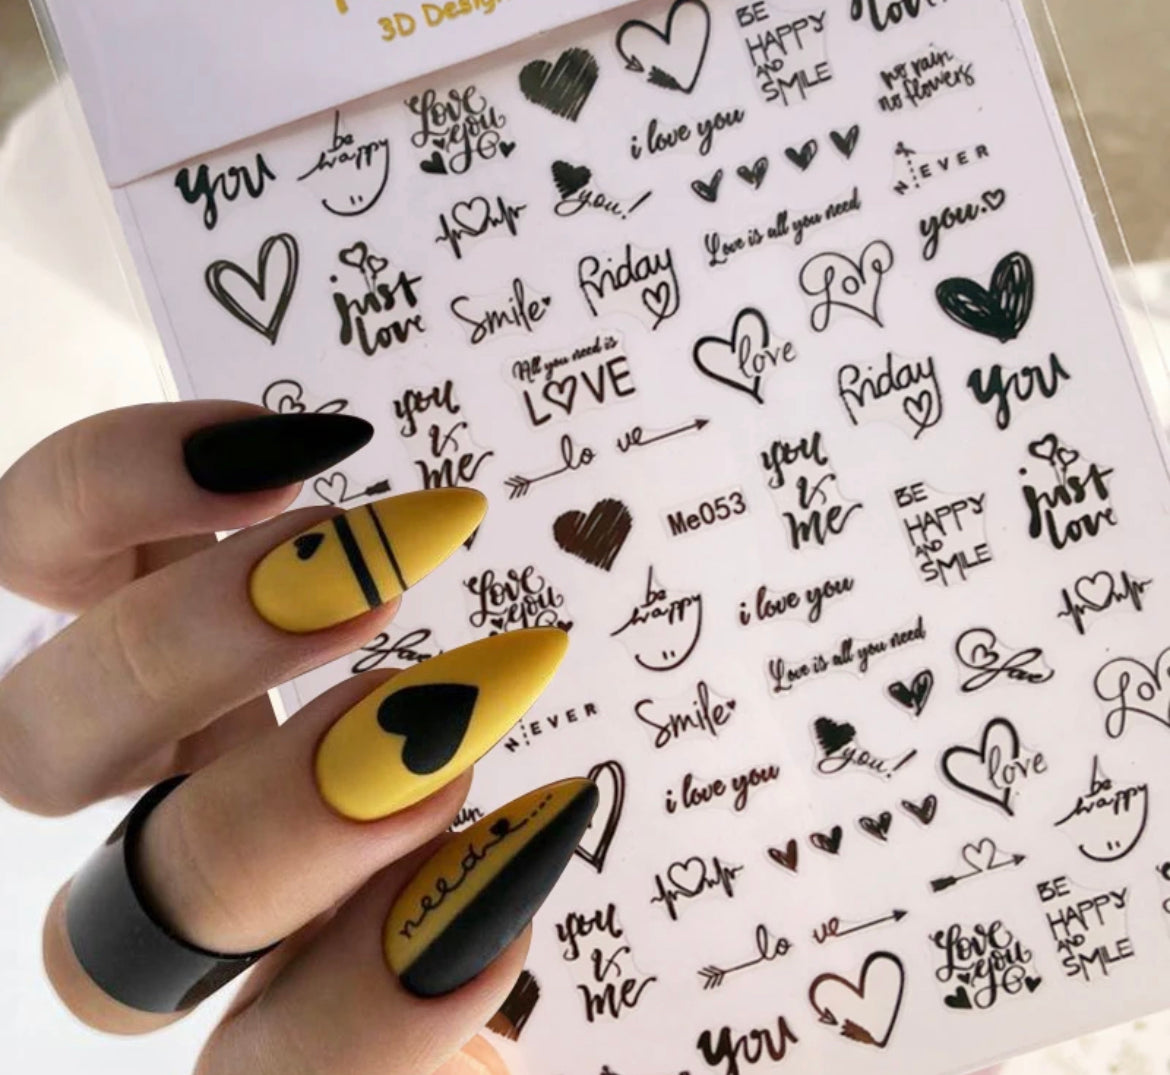 3D Design
BE
HAPPY
AND
SMILE
Love
you
be
happy
you
i love you
no rain
no flowers
you!
NEVER
Love is all you need
you
just
love
Smile
friday
Lov
love
All you need is
LOVE
you
&
me
friday
you
lo ve
Me053
you
&
me
BE
HAPPY
AND
SMILE
just
love
Love
you
be
happy
i love you
Love is all you need
Love
NEVER
Smile
you!
love
Lov
i love you
be
happy
need
you
&
me
lo ve
Love
you
BE
HAPPY
AND
SMILE
you